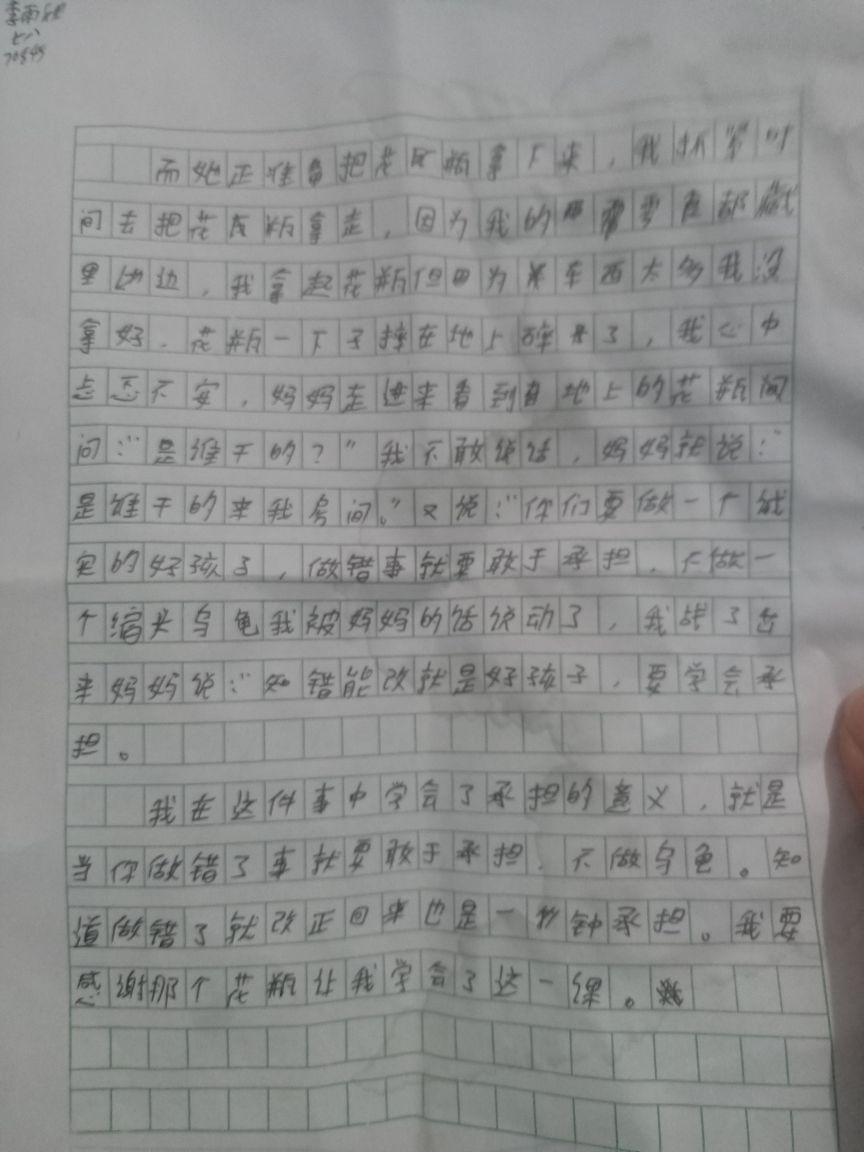 七八
而她正准备把花瓶拿下来，我抓紧时
间去把花瓶拿走，因为我的都藏
里边边，我拿起花瓶但因为东西太多我没
拿好．花瓶一下子摔在地上碎了，我心中
忐忑不安，妈妈走进来看到在地上的花瓶问
问：“是谁干的？”我不敢说话，妈妈就说：“
是谁干的来我房间。”又说：“你们要做一个诚
实的好孩子，做错事就要敢于承担．不做一
个缩头乌龟我被妈妈的话说动了，我战了出
来妈妈说：“知错能改就是好孩子，要学会承
担。
我在这件事中学会了承担的意义，就是
当你做错了事就要敢于承担．不做乌龟。知
道做错了就改正回来也是一种承担。我要
感谢那个花瓶让我学会了这一课。